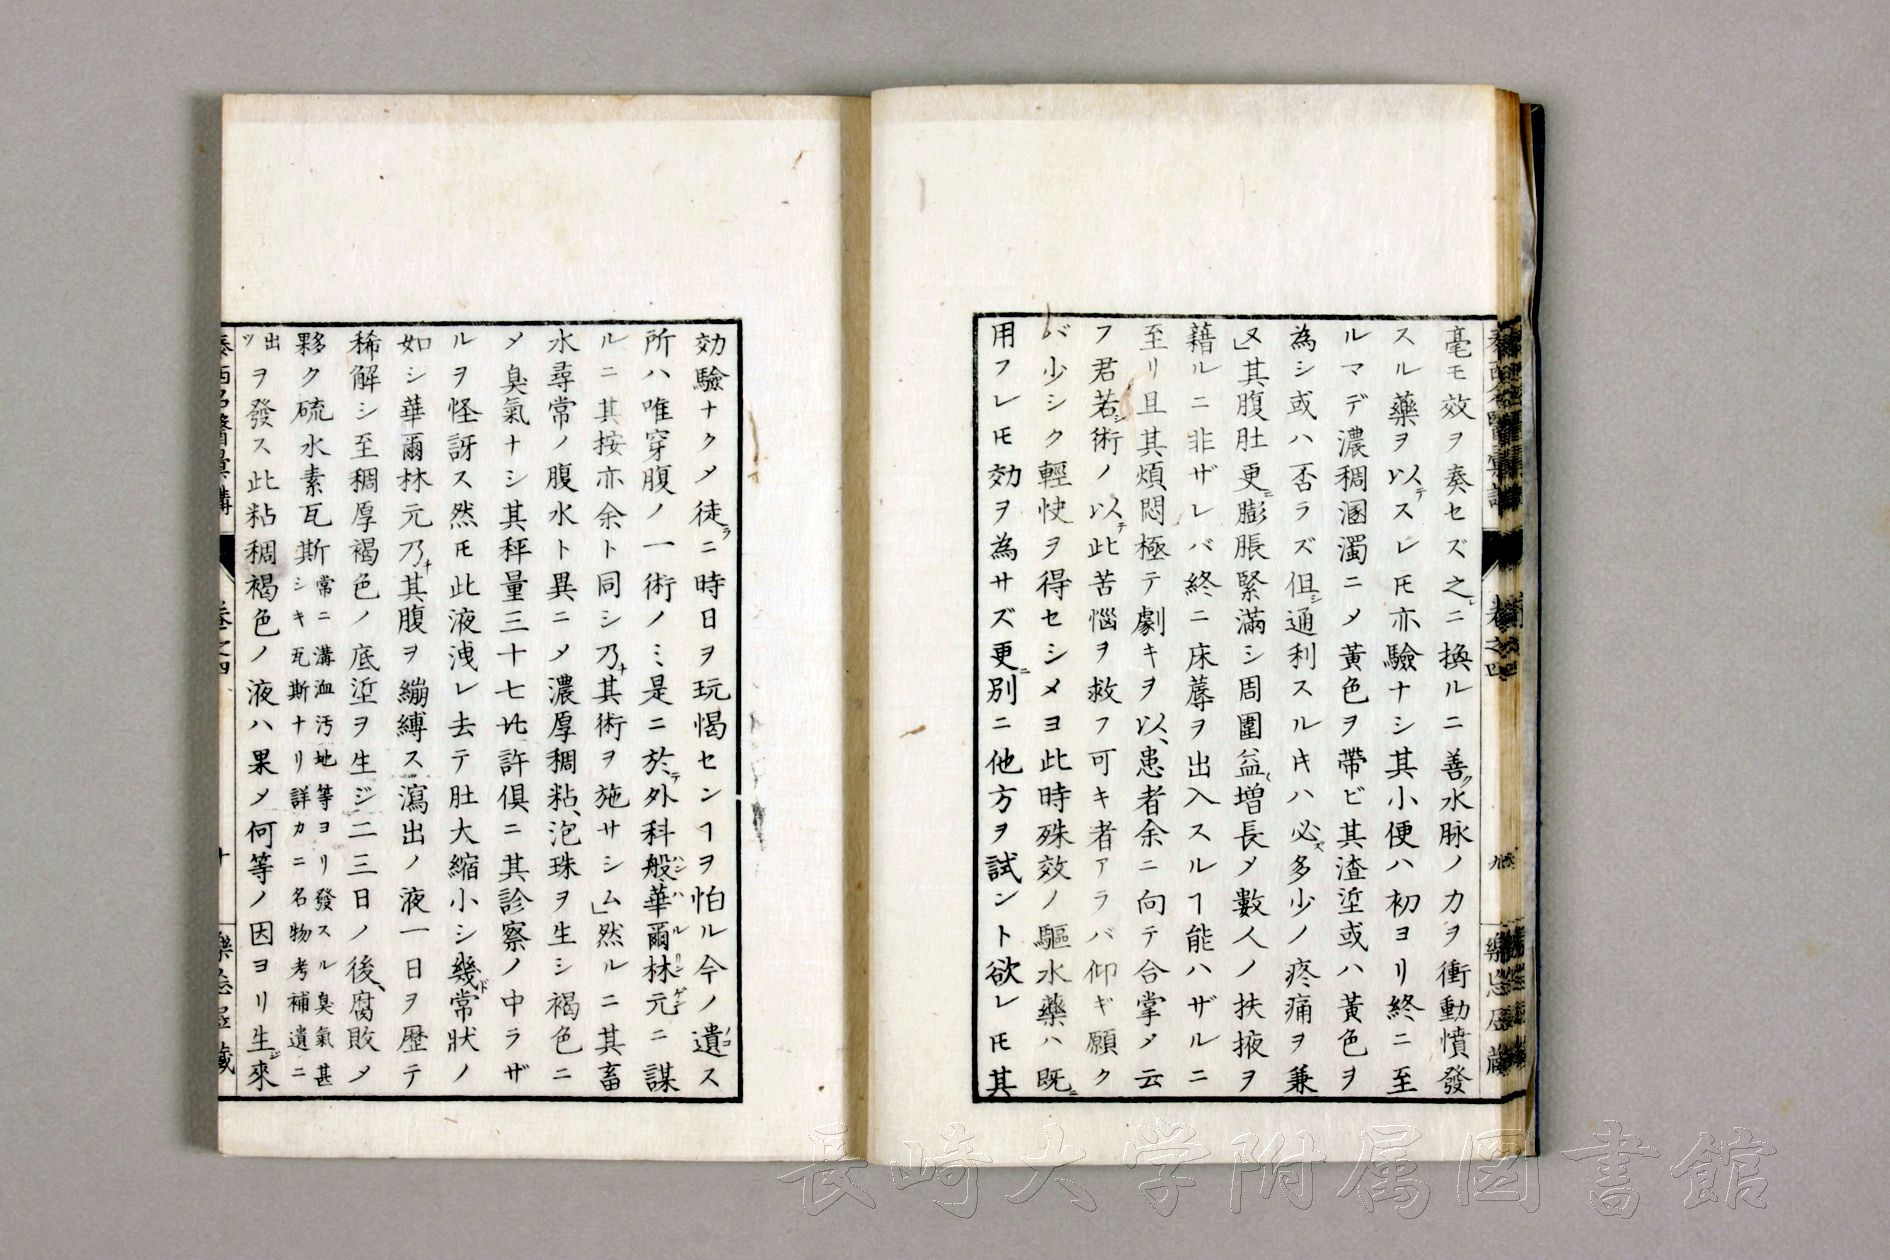 毫モ效ヲ奏セズ之ニ換ルニ善ク水脉ノ力ヲ衝動憤發
スル藥ヲ以テスレ𪜈亦驗ナシ其小便ハ初ヨリ終ニ至
ルマデ濃稠溷濁ニ〆黄色ヲ帶ビ其渣埿或ハ黄色ヲ
為シ或ハ否ラズ但シ通利スルキハ必ズ多少ノ疼痛ヲ兼
ヌ」其腹肚更ニ膨脹緊滿シ周圍益〻増長〆數人ノ扶掖ヲ
藉ルニ非ザレバ終ニ床蓐ヲ出入スルヿ能ハザルニ
至リ且其煩悶極テ劇キヲ以、患者余ニ向テ合掌〆云
フ君若シ術ノ以テ此苦惱ヲ救フ可キ者アラバ仰ギ願ク
バ少シク輕快ヲ得セシメヨ此時殊效ノ驅水藥ハ既ニ
用フレ𪜈効ヲ為サズ更ニ別ニ他方ヲ試ント欲レ𪜈其
効驗ナク〆徒ラニ時日ヲ玩愒センヿヲ怕ル今ノ遺ス
所ハ唯穿腹ノ一術ノミ是ニ於テ外科般華爾林元ニ謀
ルニ其按亦余ト同シ乃チ其術ヲ施サシム」然ルニ其畜
水尋常ノ腹水ト異ニ〆濃厚稠粘、泡珠ヲ生シ褐色ニ
〆臭氣ナシ其秤量三十七許倶ニ其診察ノ中ラザ
ルヲ怪訝ス然𪜈此液洩レ去テ肚大縮小シ幾ド常狀ノ
如シ華爾林元乃チ其腹ヲ繃縛ス瀉出ノ液一日ヲ歴テ
稀解シ至稠厚褐色ノ底埿ヲ生ジ二三日ノ後、腐敗〆
夥ク硫水素瓦斯常ニ溝洫汚地等ヨリ發スル臭氣甚シキ瓦斯ナリ詳カニ名物考補遺ニ出ツ
ヲ發ス此粘稠褐色ノ液ハ果〆何等ノ因ヨリ生ジ來
泰西名醫彙講
卷之四
十
樂忘居藏
長崎大学附属図書館